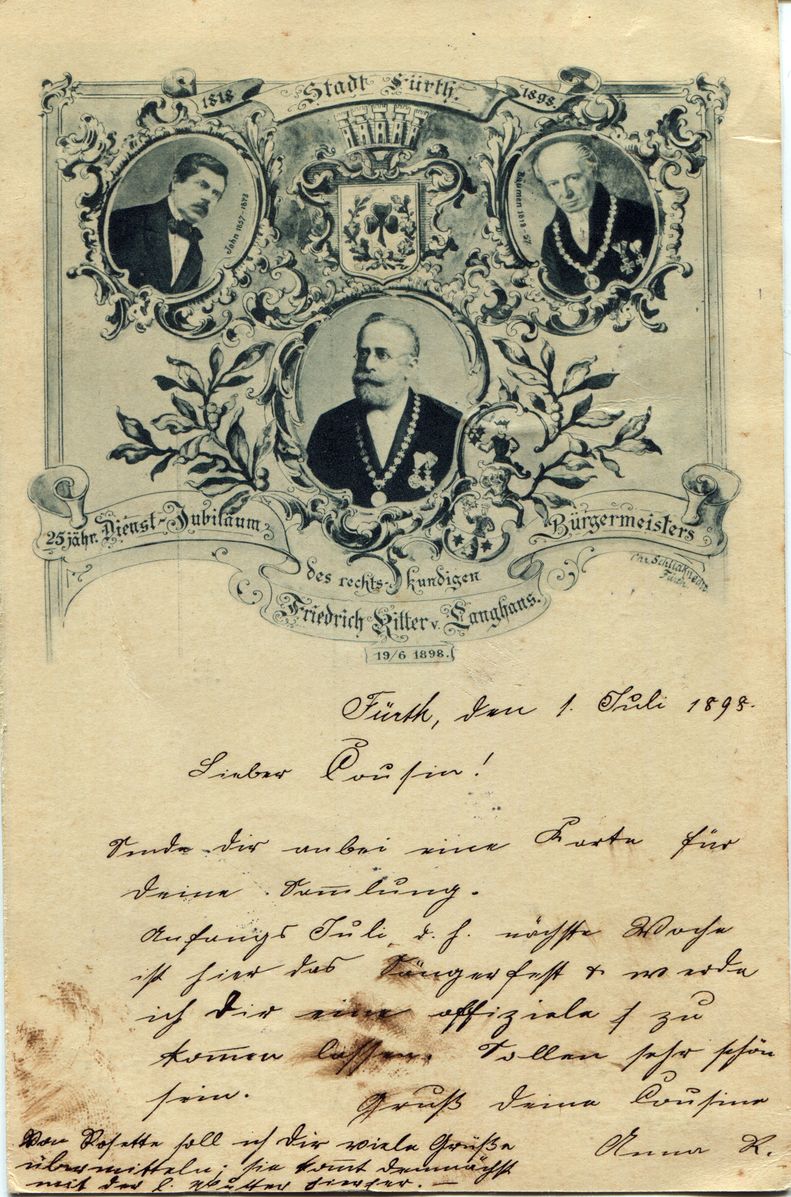 1818 Stadt Fürth. 1898.
John 1857-1873
Bäumen 1818-57
25jähr. Dienst-Jubiläum
Bürgermeisters
des rechts-kundigen
Friedrich Ritter v. Langhans.
19/6 1898.
Fürth
Fürth, den 1. Juli 1898.
Lieber Cousin!
Sende dir anbei eine Karte für
deine Sammlung.
Anfangs Juli, d. h. nächste Woche
ist hier das Sängerfest & werde
ich Dir eine offiziele zu
kommen lassen. Sollen sehr schön
sein.
Gruß deine Cousine
Anna R.
Von Rosette soll ich Dir viele Grüße
übermitteln; sie kommt demnächst
mit der l. Mutter hierher. —